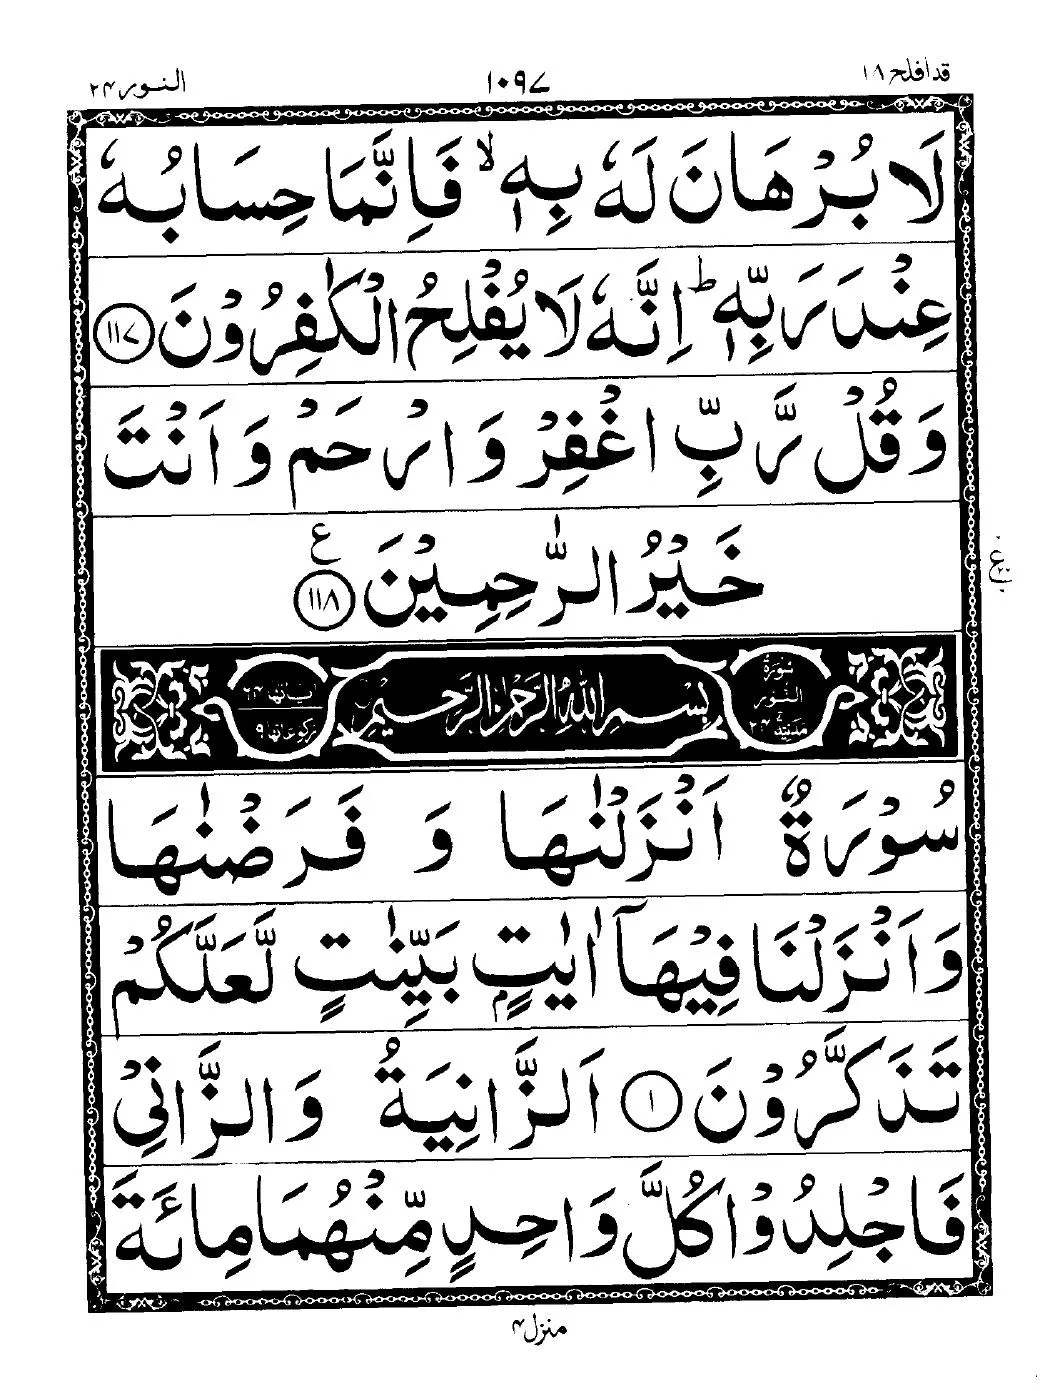 قد افلح ۱۸ ۱۰۹۷ النور ۲۴
لَا بُرْهَانَ لَهٗ بِهٖ ۙ فَاِنَّمَا حِسَابُهٗ
عِنْدَ رَبِّهٖ ؕ اِنَّهٗ لَا يُفْلِحُ الْكٰفِرُوْنَ ۱۱۷
وَقُلْ رَّبِّ اغْفِرْ وَارْحَمْ وَاَنْتَ
خَيْرُ الرّٰحِمِيْنَ ۱۱۸ ع
سُوْرَةُ النُّوْرِ مَدَنِيَّةٌ ۲۴ بِسْمِ اللهِ الرَّحْمٰنِ الرَّحِيْمِ اٰيَاتُهَا ۶۴ رُكُوْعَاتُهَا ۹
سُوْرَةٌ اَنْزَلْنٰهَا وَ فَرَضْنٰهَا
وَاَنْزَلْنَا فِيْهَآ اٰيٰتٍۭ بَيِّنٰتٍ لَّعَلَّكُمْ
تَذَكَّرُوْنَ ۱ اَلزَّانِيَةُ وَالزَّانِيْ
فَاجْلِدُوْا كُلَّ وَاحِدٍ مِّنْهُمَا مِائَةَ
منزل ۴